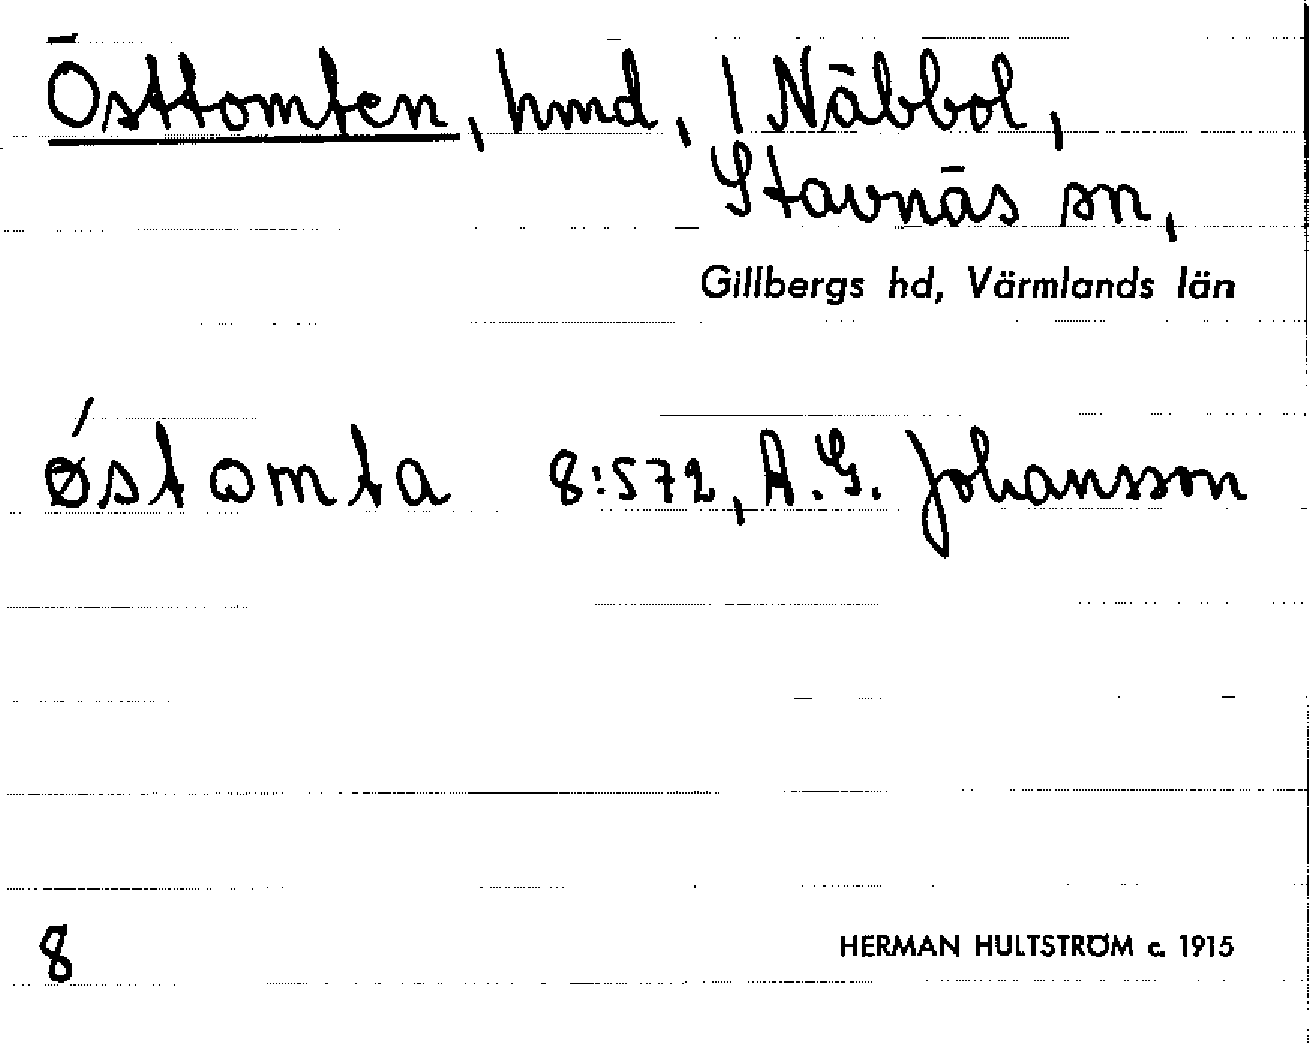 Östtomten, hmd, 1 Näbbol,
Stavnäs sn,
Gillbergs hd, Värmlands län
ǿstomta 8:572, A.G. Johansson
8 HERMAN HULTSTRÖM c. 1915